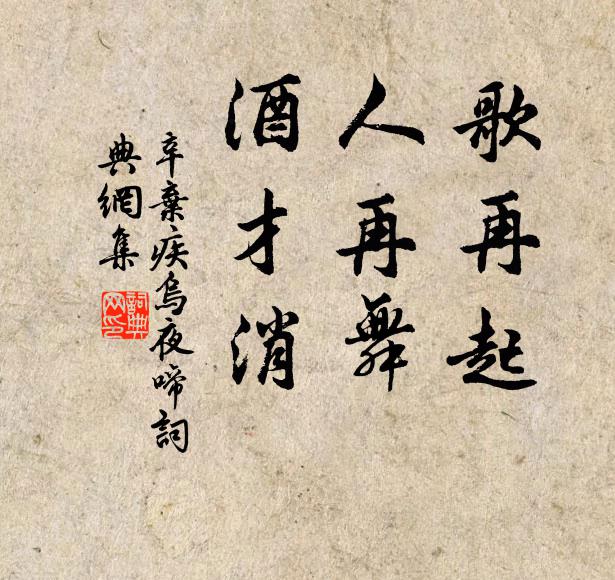 歌再起
人再舞
酒才消
辛棄疾烏夜啼詞
典網集
詞典
网印